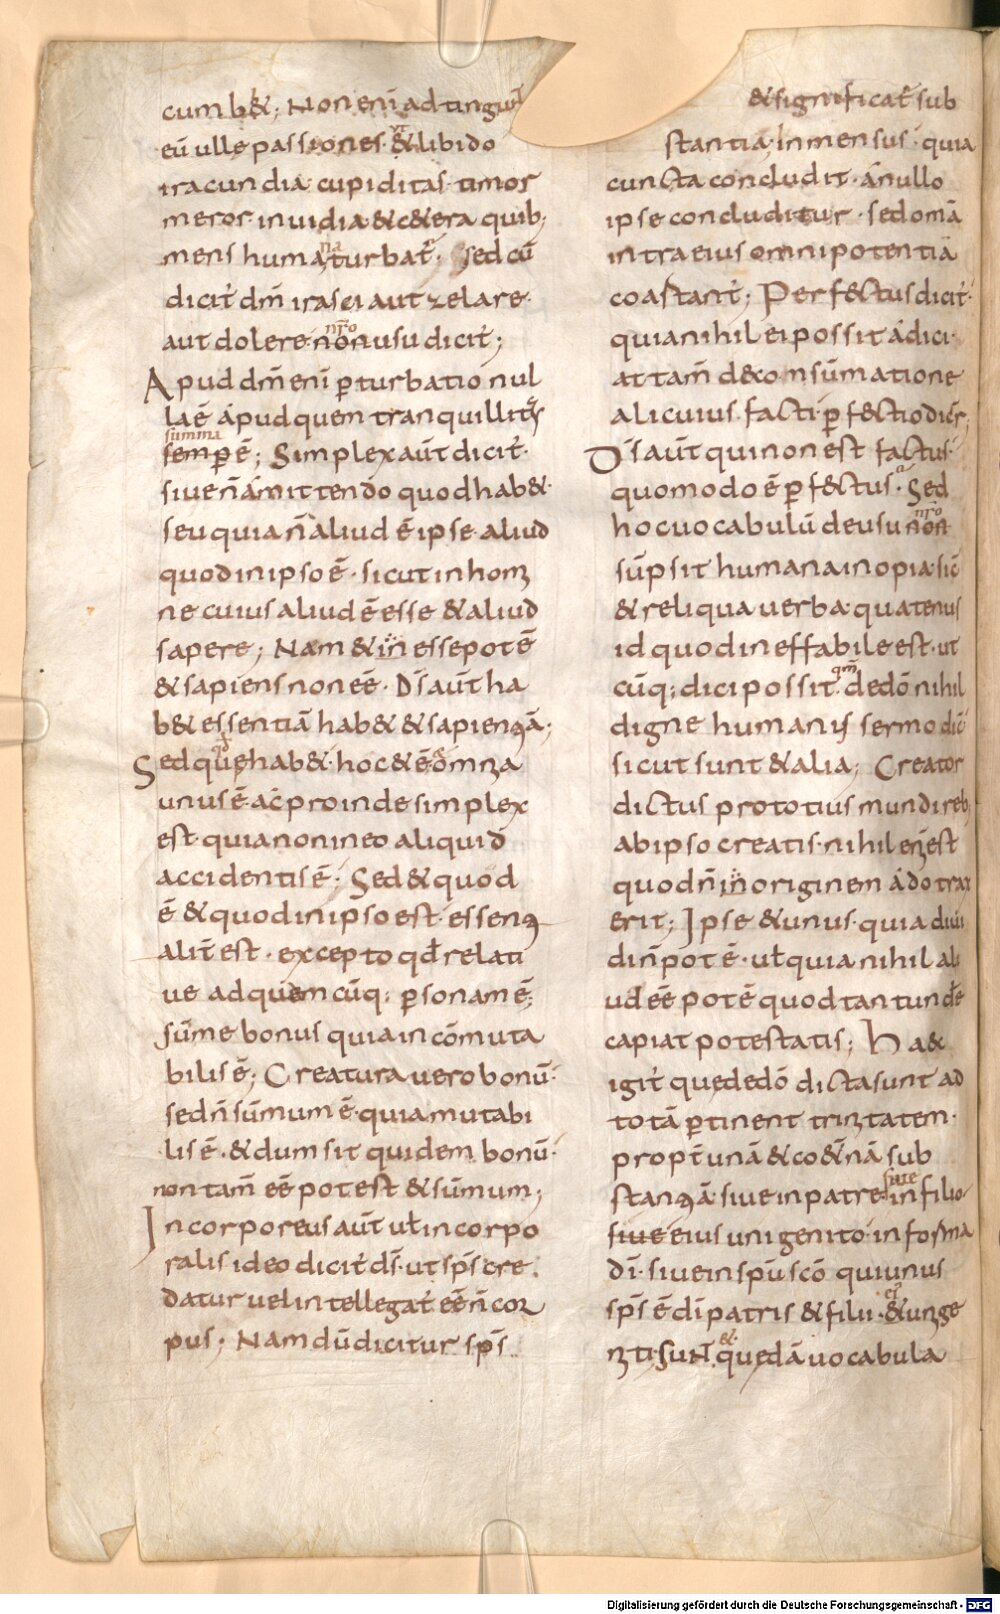 cumb&; Non enī adtingunt
eū ullę passiones ut &libido
iracundia cupiditas timor
meror inuidia &c&era quib;
mens humana turbat̄. sed cū
dicit̄ dm̄ irasci aut zelare.
aut dolere nr̄o non usu dicit̄;
Apud dm̄ enī ꝑturbatio nul
la ē apud quem tranquillitas
summa semꝑ ē; Simplex aūt dicit̄.
siue n̄ amittendo quod hab&.
seu quia n̄ aliud ē ipse. aliud
quod in ipso ē. sicut in homi
ne cuius aliud ē esse &aliud
sapere; Nam &in esse potē
&sapiens non eē. Ds̄ aūt ha
b& essentiā hab& &sapientiā;
Sed quę hab&. hoc & ē & omnia
unus ē ac̄ proinde simplex
est. quia non in eo aliquid
accidentis ē; Sed &quod
ē &quod in ipso est. essenti
alit̄ est. excepto qđ relati
ue ad quemcūq; ꝑsonam ē;
Sūme bonus quia incōmuta
bilis ē; Creatura uero bonū.
sed n̄ sūmum ē. quia mutabi
lis ē. &dum sit quidem bonū.
non tam̄ eē potest &sūmum;
Incorporeus aūt uł incorpo
ralis ideo dicit̄ ds̄. ut sp̄s cre
datur uel intellegat̄ eē n̄ cor
pus; Nam dū dicitur sp̄s.
&significat̄ sub
stantia; Inmensus. quia
cuncta concludit. a nullo
ipse concluditur. sed omā
intra eius omnipotentiā
coastant̄; Perfectus dicit̄.
quia nihil ei possit adici.
at tam̄ de consūmatione
alicuius facti ꝑfectio dic̄r;
Ds̄ aūt qui non est factus.
quomodo ē ꝑfectus. Sed
hoc uocabulū de usu nr̄o non
sūpsit humana inopia. sic̄
&reliqua uerba. quatenus
id quod ineffabile est. ut
cūq; dici possit. qm̄ de dō nihil
digne humanus sermo dic̄
sicut sunt &alia; Creator
dictus pro totius mundi reb;
ab ipso creatis. nihil eni est
quod n̄ in originem a dō trax
erit; Ipse &unus. quia diui
di n̄ potē. uł quia nihil ali
ud eē potē quod tantundē
capiat potestatis; Haec
igit̄ quę de dō dicta sunt ad
totā ꝑtinent trinitatem.
propt̄ unā &co&n̄ā sub
stantiā. siue in patre siue in filio
siue eius unigenito. in forma
dī. siue in sp̄u scō qui unus
sp̄s ē dī patris &filii. ei & unige
niti. Sunt & quędā uocabula